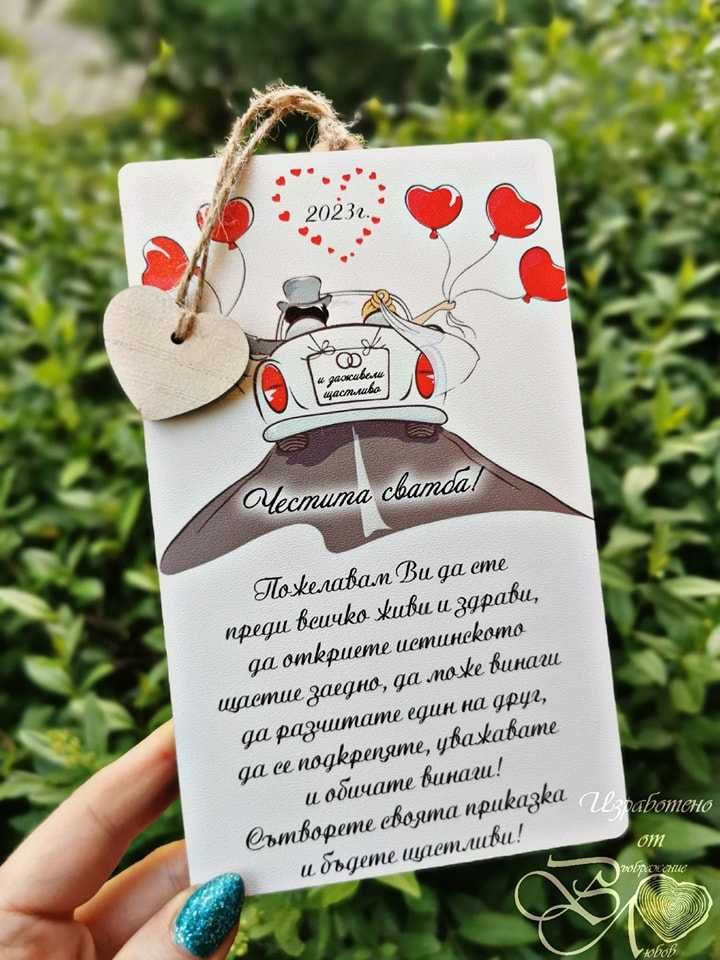 2023г.
и заживели
щастливо
Честита сватба!
Пожелавам Ви да сте
преди всичко живи и здрави,
да откриете истинското
щастие заедно, да може винаги
да разчитате един на друг,
да се подкрепяте, уважавате
и обичате винаги!
Сътворете своята приказка
и бъдете щастливи!
Изработено
от
Въображение
Любов